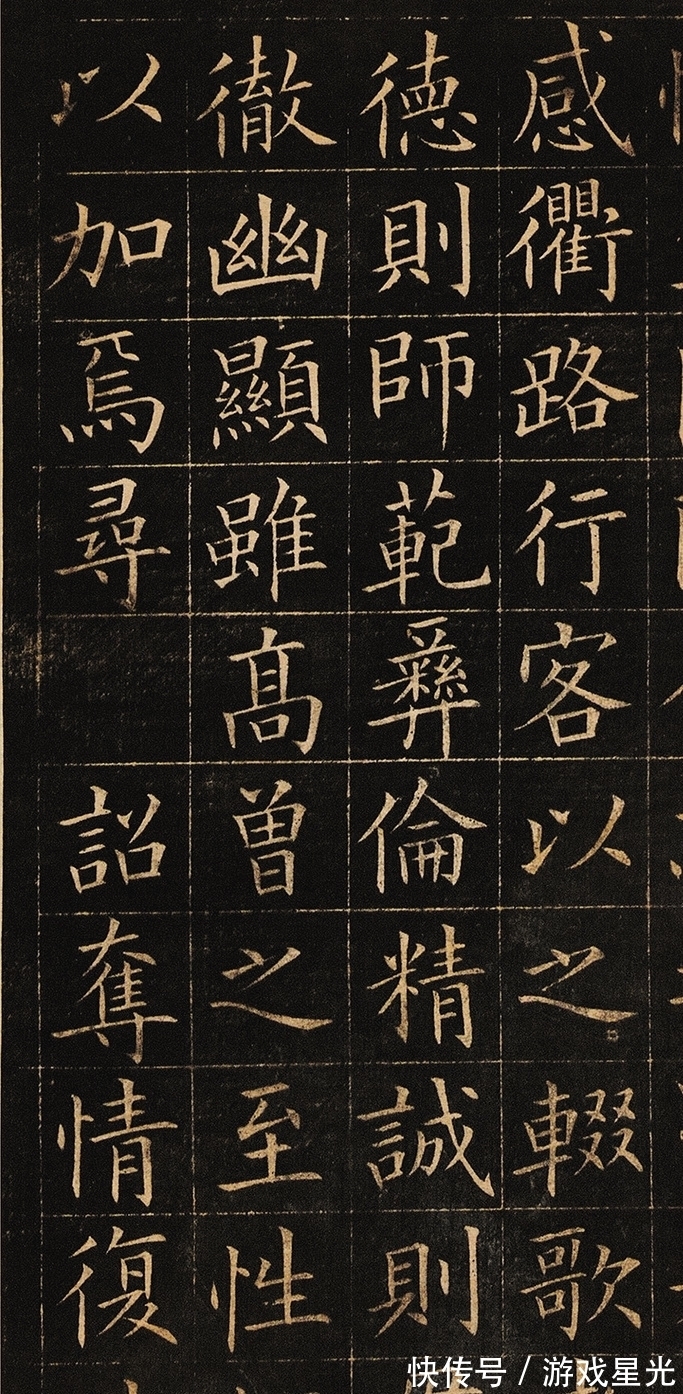 感衢路行客以之輟歌
德則師範彝倫精誠則
徹幽顯雖高曾之至性
以加焉尋 詔奪情復
快传号 / 游戏星光